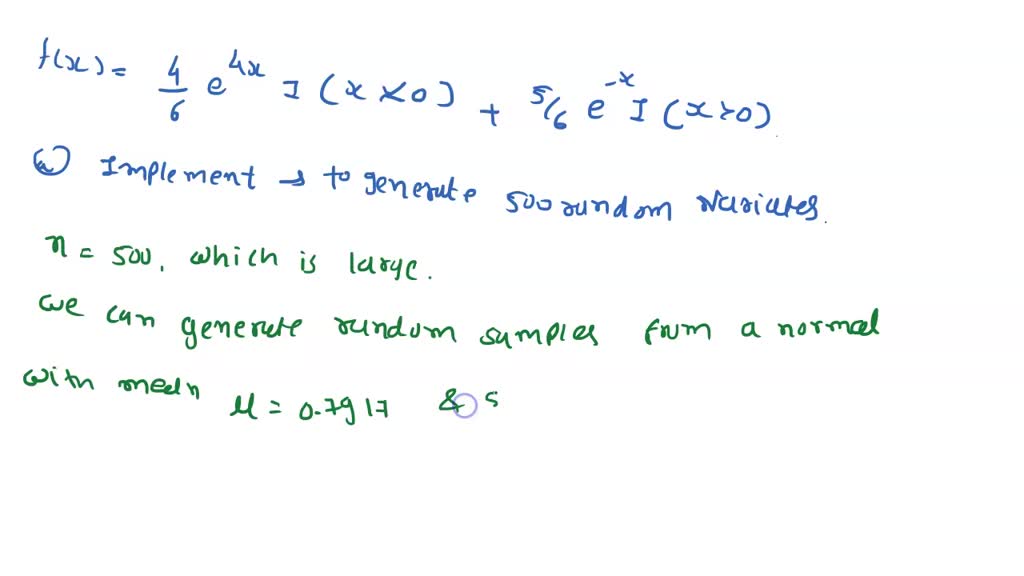 f(x) = 4/6 e^4x I (x < 0) + 5/6 e^-x I (x > 0)
a) Implement → to generate 500 random variates.
n = 500, which is large.
we can generate random samples from a normal
with mean μ = 0.7917 & s